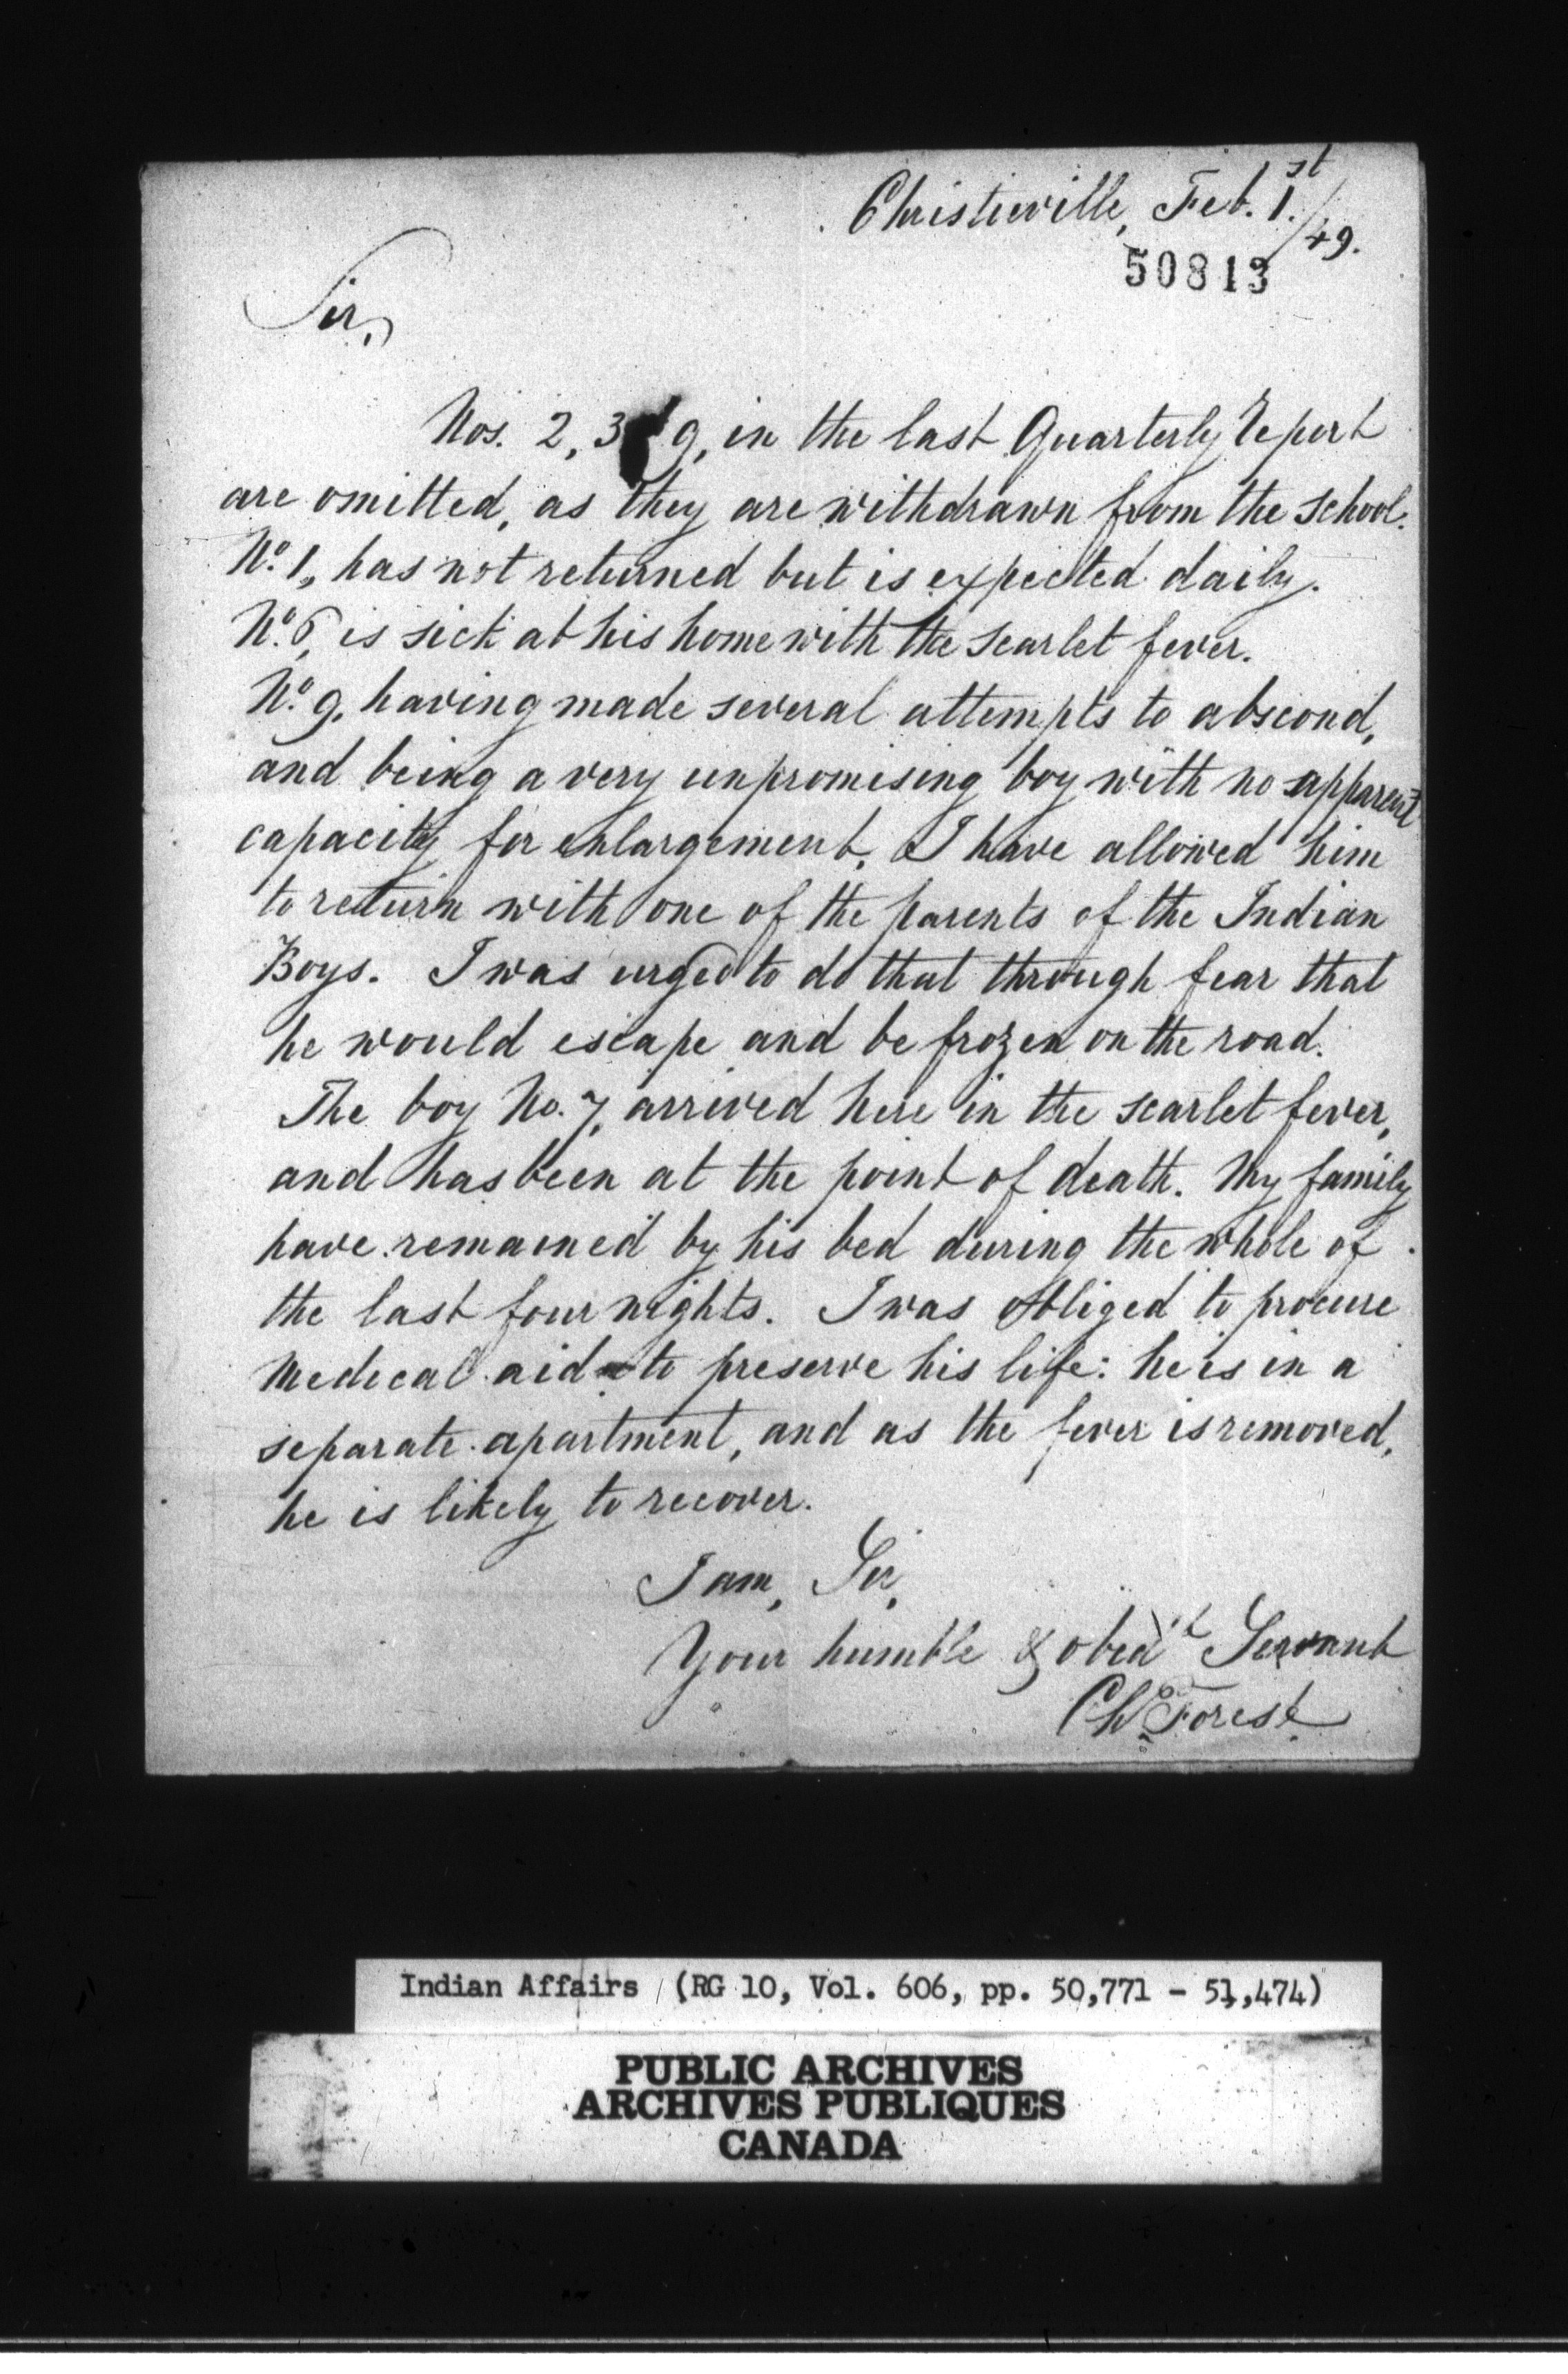 Christieville, Feb. 1.st/49.
50813
Sir,
Nos. 2, 3 & 9, in the last Quarterly Report
are omitted, as they are withdrawn from the school.
No. 1, has not returned but is expected daily.
No. 6, is sick at his home with the scarlet fever.
No. 9, having made several attempts to abscond,
and being a very unpromising boy with no apparent
capacity for enlargement, I have allowed him
to return with one of the parents of the Indian
Boys. I was urged to do that through fear that
he would escape and be frozen on the road.
The boy No. 7, arrived here in the scarlet fever,
and has been at the point of death. My family
have remained by his bed during the whole of
the last four nights. I was obliged to procure
Medical aid to preserve his life: he is in a
separate apartment, and as the fever is removed,
he is likely to recover.
I am, Sir,
Your humble & obed't Servant
Ch. Forest
Indian Affairs (RG 10, Vol. 606, pp. 50,771 - 51,474)
PUBLIC ARCHIVES
ARCHIVES PUBLIQUES
CANADA